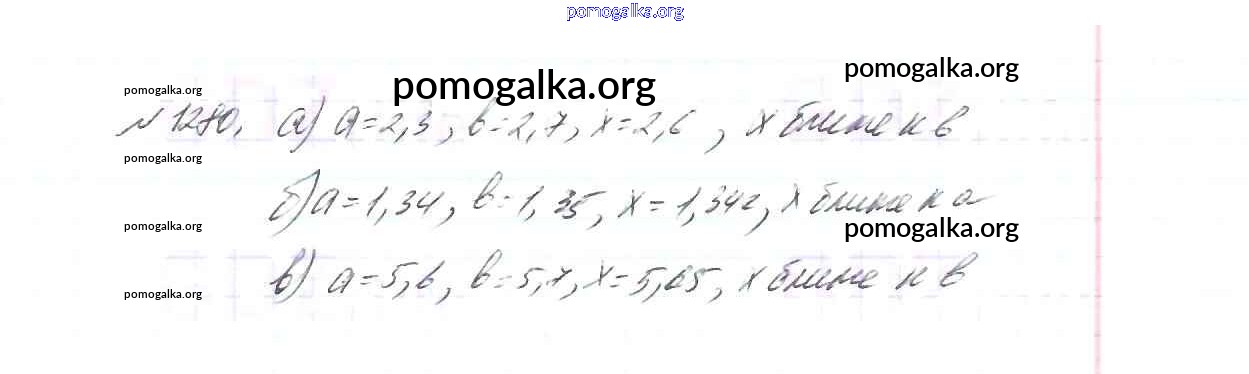 pomogalka.org
pomogalka.org
pomogalka.org
pomogalka.org
№1280. а) a=2,3, b=2,7, x=2,6, x ближе к b
pomogalka.org
б) a=1,34, b=1,35, x=1,342, x ближе к a
pomogalka.org
pomogalka.org
в) a=5,6, b=5,7, x=5,65, x ближе к b
pomogalka.org